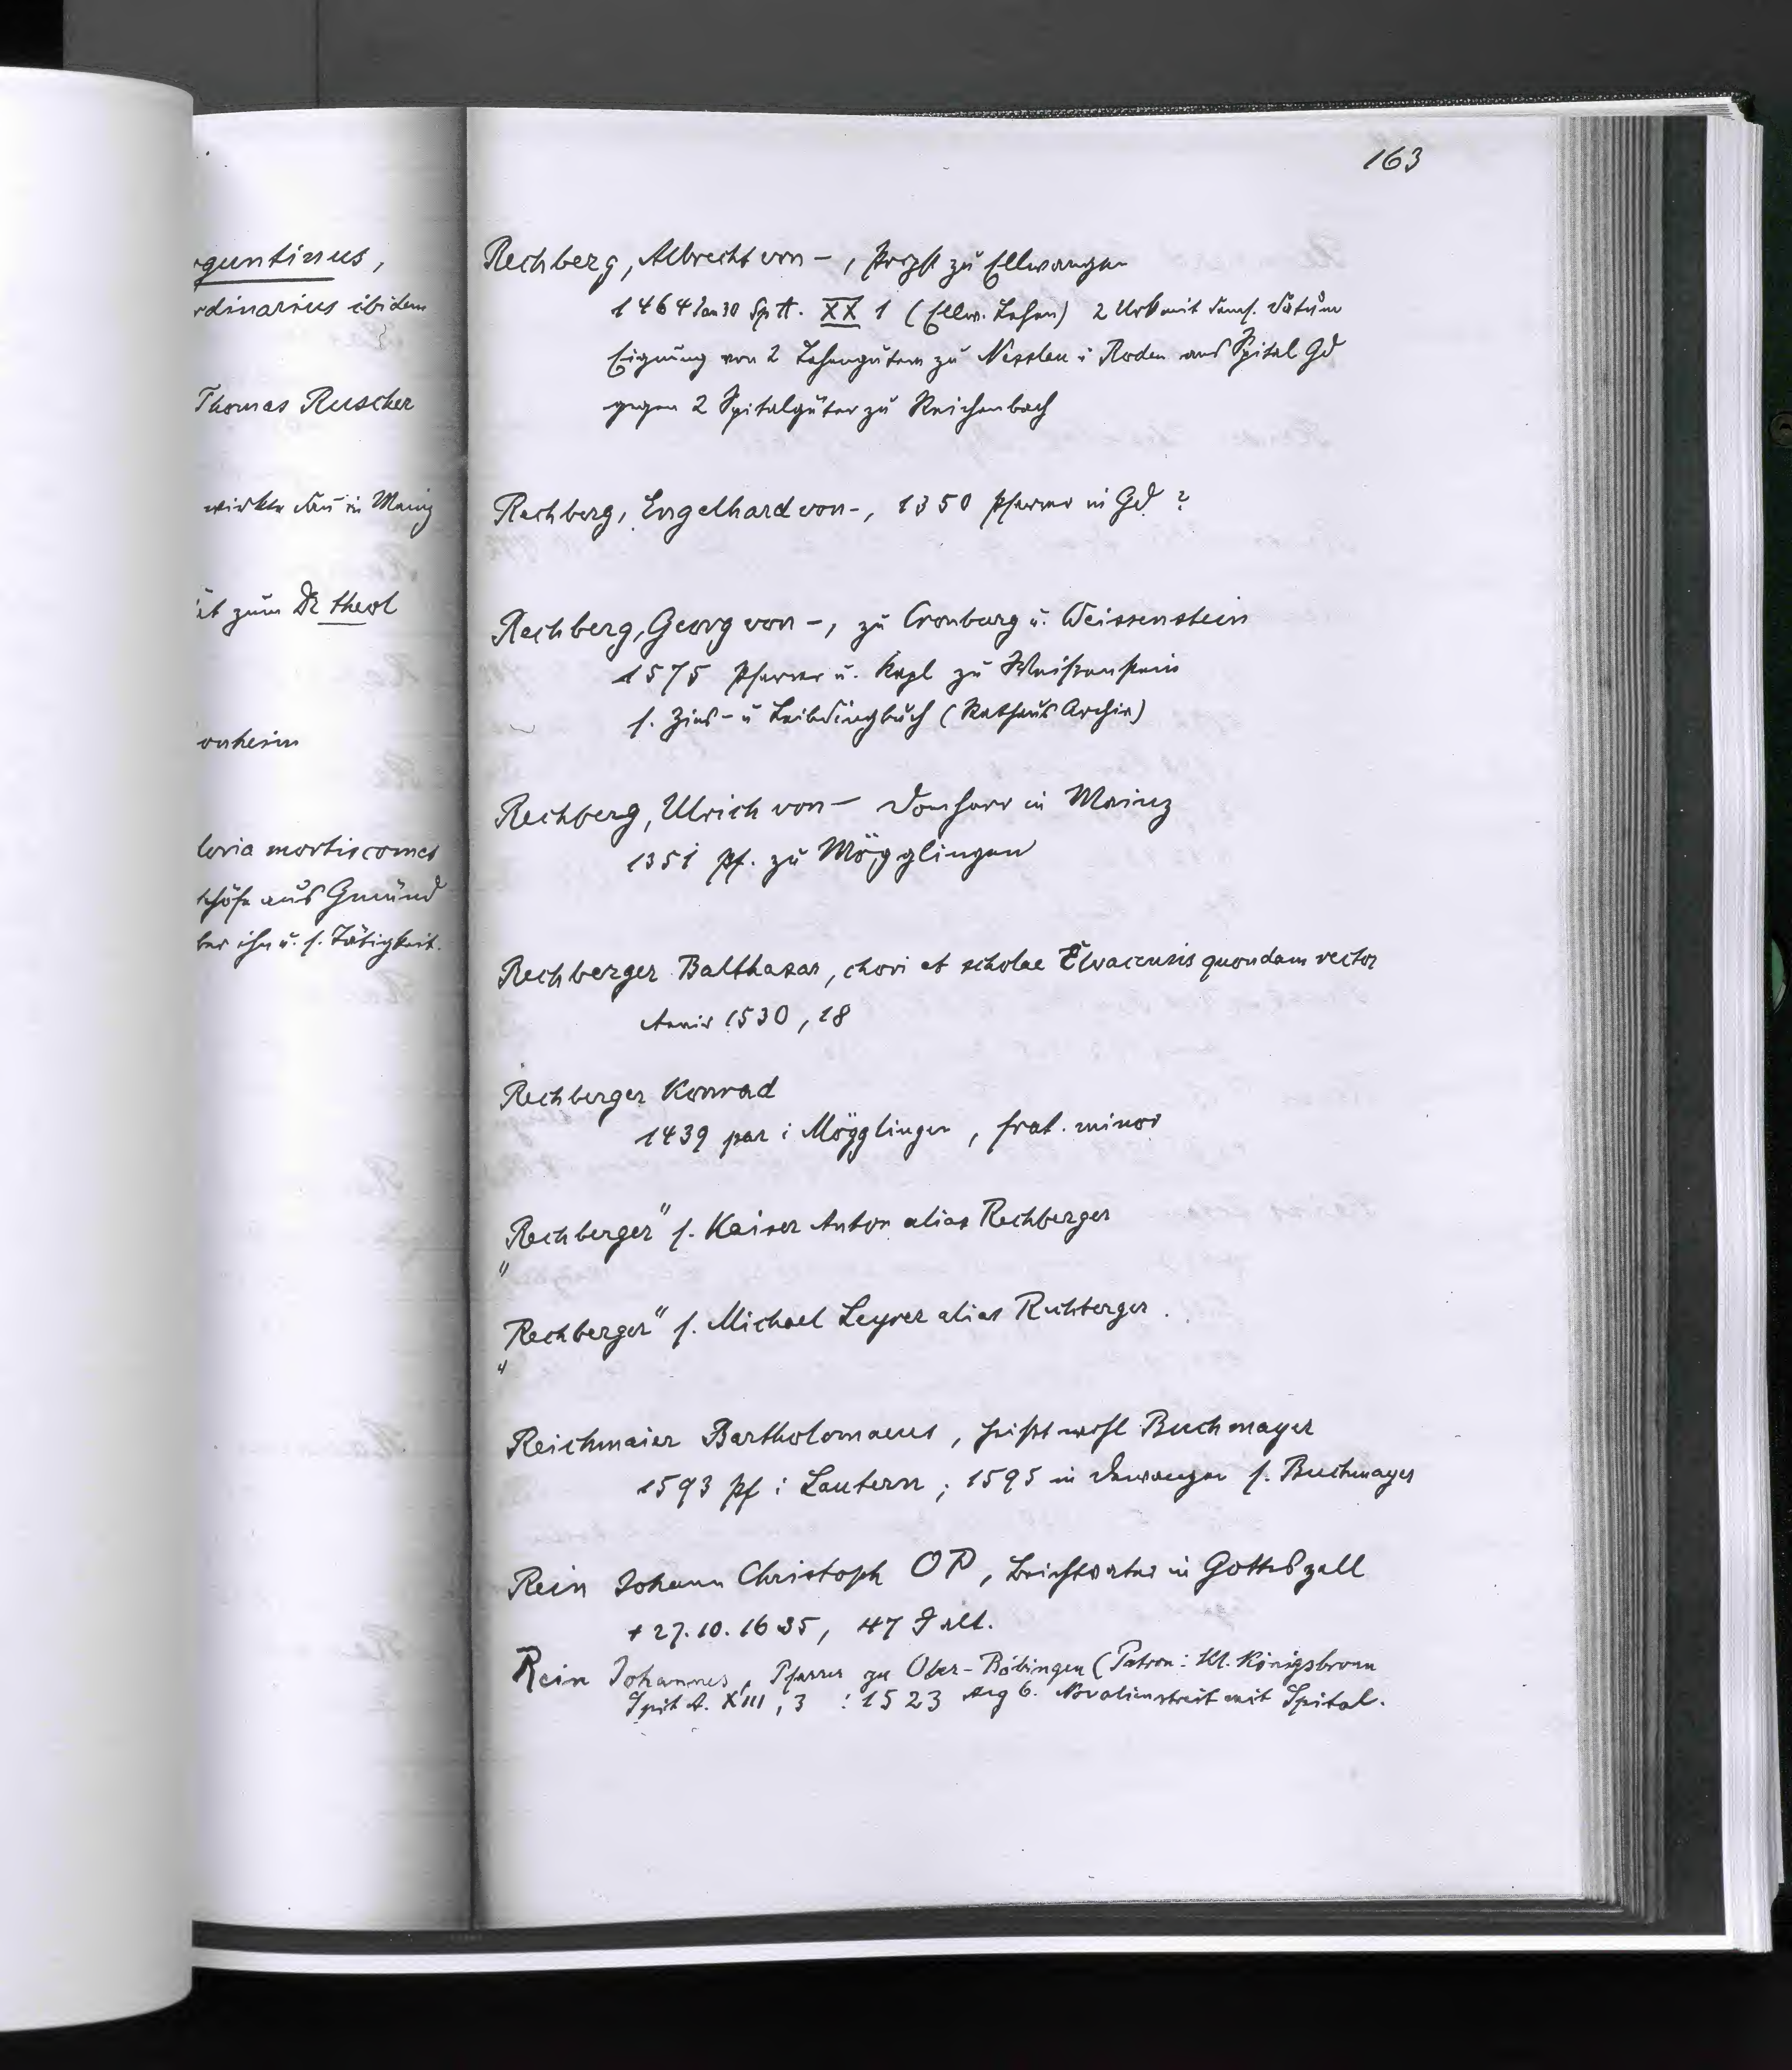 163
guntinus,
rdinarius ibidem
Thomas Ruscher
wirkte dan in Mainz
ät zum Dr theol
onheim
loria mortis comes
schöfe aus Gmünd
ber ihn u. s. Tätigkeit.
Rechberg, Albrecht von -, Propst zu Ellwangen
1464 Jan 30 Sp A. XX 1 (Ellw. Lehen) 2 Urk mit dems. Datum
Eignung von 2 Lehengütern zu Nesslau u Roden ans Spital Gd
gegen 2 Spitalgüter zu Reichenbach
Rechberg, Engelhard von -, 1350 Pfarrer in Gd ?
Rechberg, Georg von -, zu Cronburg u. Weissenstein
1575 Pfarrer u. Kapl zu Weißenstein
s. Zins- u Leibdingbuch (Rathaus Archiv)
Rechberg, Ulrich von - Domherr in Mainz
1351 Pf. zu Mögglingen
Rechberger Balthasar, chori et scholae Elvacensis quondam rector
Annis 1530, 18
Rechberger Konrad
1439 par i Mögglingen, frat. minor
"Rechberger" s. Kaiser Anton alias Rechberger
"Rechberger" s. Michael Leyrer alias Rechberger.
Reichmaier Bartholomaeus, heißt wohl Buchmayer
1593 Pf i Lautern; 1595 in Dewangen s. Buchmayer
Rein Johann Christoph OP, Beichtvater in Gotteszell
+ 27.10.1635, 47 J alt.
Rein Johannes, Pfarrer zu Ober-Böbingen (Patron: Kl. Königsbronn
Spit A. XIII, 3 : 1523 Aug 6. Novalienstreit mit Spital.